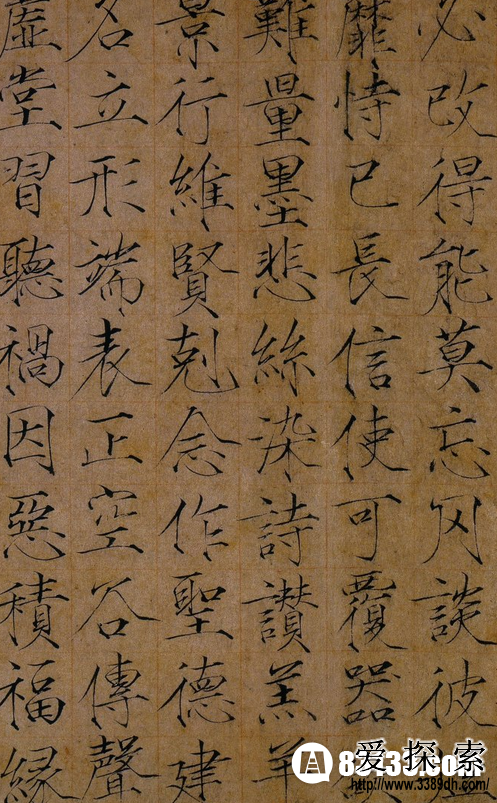 必改得能莫忘罔談彼
靡恃己長信使可覆器
難量墨悲絲染詩讚羔羊
景行維賢剋念作聖德建
名立形端表正空谷傳聲
虛堂習聽禍因惡積福緣
爱探索
http://www.3389dh.com